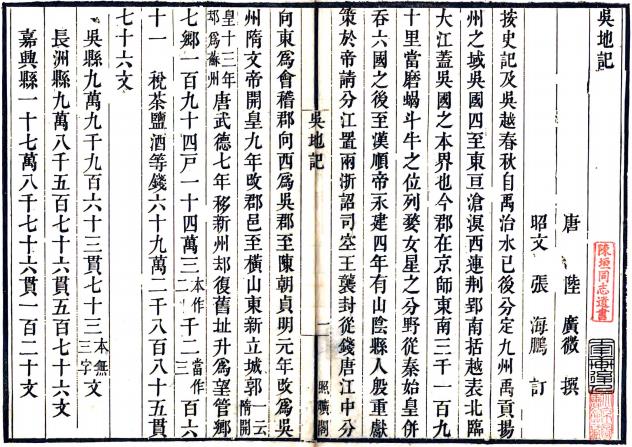 吳地記
唐 陸廣微 撰
昭文 張海鵬 訂
按史記及吳越春秋自禹治水已後分定九州禹貢揚
州之域吳國四至東亘滄溟西連荆郢南括越表北臨
大江蓋吳國之本界也今郡在京師東南三千一百九
十里當磨蝎斗牛之位列婺女星之分野從秦始皇併
吞六國之後至漢順帝永建四年有山陰縣人殷重獻
策於帝請分江置兩浙詔司空王襲封從錢唐江中分
吳地記 一 照曠閣
向東爲會稽郡向西爲吳郡至陳朝貞明元年改爲吳
州隋文帝開皇九年改郡邑至橫山東新立城郭一云隋開
皇十三年却爲蘇州唐武德七年移新州却復舊址升爲望管鄉
七鄉一百九十四戸一十四萬三本作二千二當作三百六
十一 稅茶鹽酒等錢六十九萬二千八百八十五貫
七十六文
吳縣九萬九千九百六十三貫七十三本無三字文
長洲縣九萬八千五百七十六貫五百七十六文
嘉興縣一十七萬八千七十六貫一百二十文
陳垣同志遺書